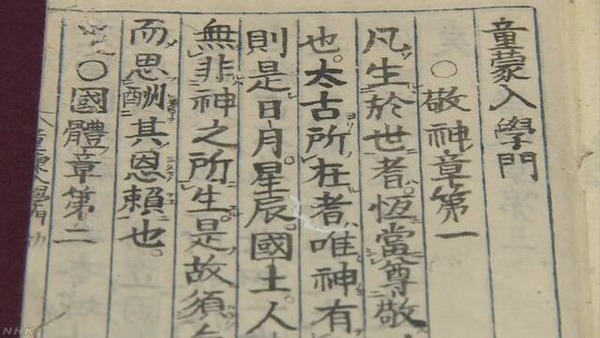 童蒙入學門
○敬神章第一
凡生於世者。恆當尊敬
也。太古所在者、唯神有
則是日月。星辰。國土。人
無非神之所生。是故須
而思酬其恩頼也。
○國體章第二
NHK